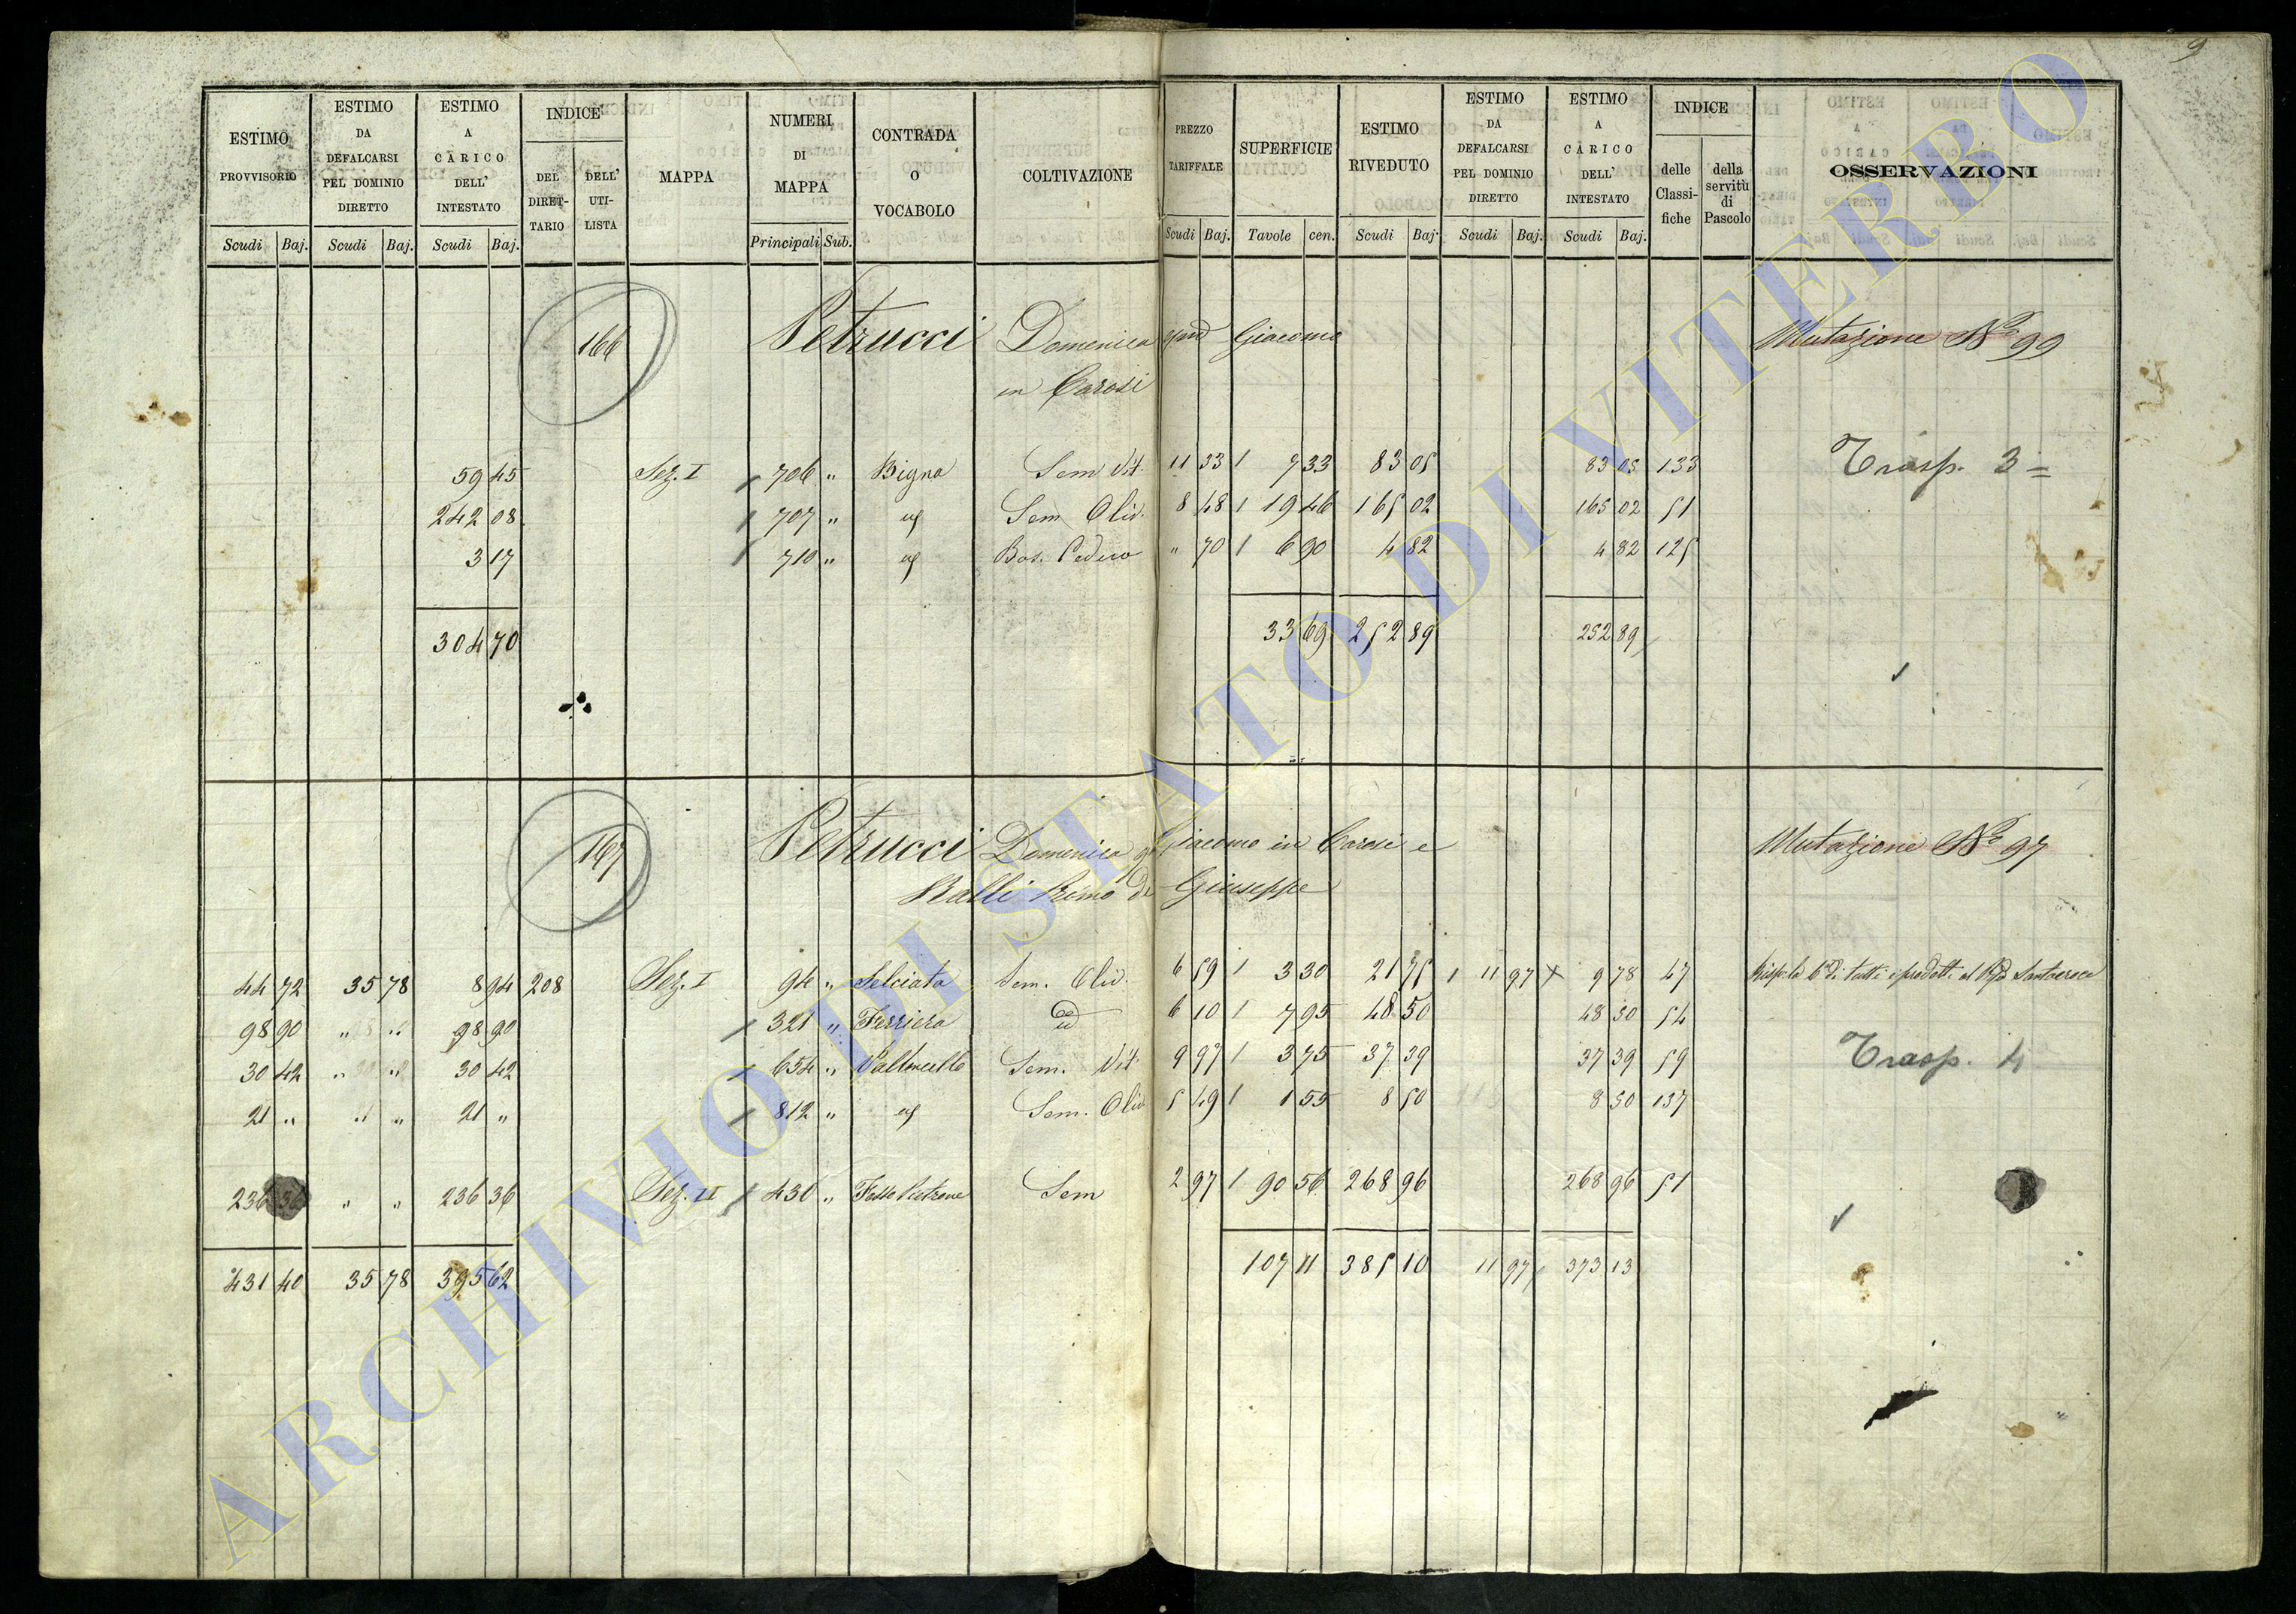 9
ESTIMO PROVVISORIO Scudi Baj. | ESTIMO DA DEFALCARSI PEL DOMINIO DIRETTO Scudi Baj. | ESTIMO A CARICO DELL' INTESTATO Scudi Baj. | INDICE DEL DIRETTARIO DELL' UTILISTA | MAPPA | NUMERI DI MAPPA Principali Sub. | CONTRADA O VOCABOLO | COLTIVAZIONE | PREZZO TARIFFALE Scudi Baj. | SUPERFICIE Tavole cen. | ESTIMO RIVEDUTO Scudi Baj. | ESTIMO DA DEFALCARSI PEL DOMINIO DIRETTO Scudi Baj. | ESTIMO A CARICO DELL' INTESTATO Scudi Baj. | INDICE delle Classifiche della servitù di Pascolo | OSSERVAZIONI
166 Petrucci Domenica qm Giacomo Mutazione No 99
in Carosi
59 45 Sez. I 706 " Bigna Sem Vit. 11 33 7 33 83 05 83 05 133 Trasp. 3 =
242 08 707 " id Sem Oliv. 8 48 19 46 165 02 165 02 51
3 17 710 " id Bos. Ceduo " 70 6 90 4 82 4 82 125
304 70 33 69 252 89 252 89
167 Petrucci Domenica qm Giacomo in Carosi e Mutazione No 97
Balli Primo di Giuseppe
44 72 35 78 8 94 208 Sez. I 94 " Selciata Sem. Oliv. 6 59 3 30 21 75 11 97 X 9 78 47 di tutti i prodotti al
98 90 " " 98 90 321 " Ferriera id 6 10 7 95 48 50 48 50 54
30 42 " " 30 42 654 " Sem. Vit. 9 97 3 75 37 39 37 39 59 Trasp. 4
21 " " " 21 " 812 " id Sem. Oliv 5 49 1 55 8 50 8 50 137
236 36 " " 236 36 Sez. II 430 " Sem 2 97 90 56 268 96 268 96 51
431 40 35 78 395 62 107 11 385 10 11 97 373 13
ARCHIVIO DI STATO DI VITERBO